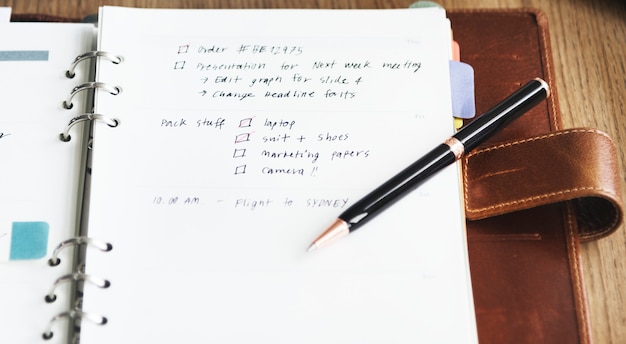 □ Order #BE12975
□ Presentation for Next week meeting
→ Edit graph for slide 4
→ Change Headline fonts
Pack stuff □ laptop
□ suit + shoes
□ marketing papers
□ camera!!
10.00 AM - Flight to SYDNEY